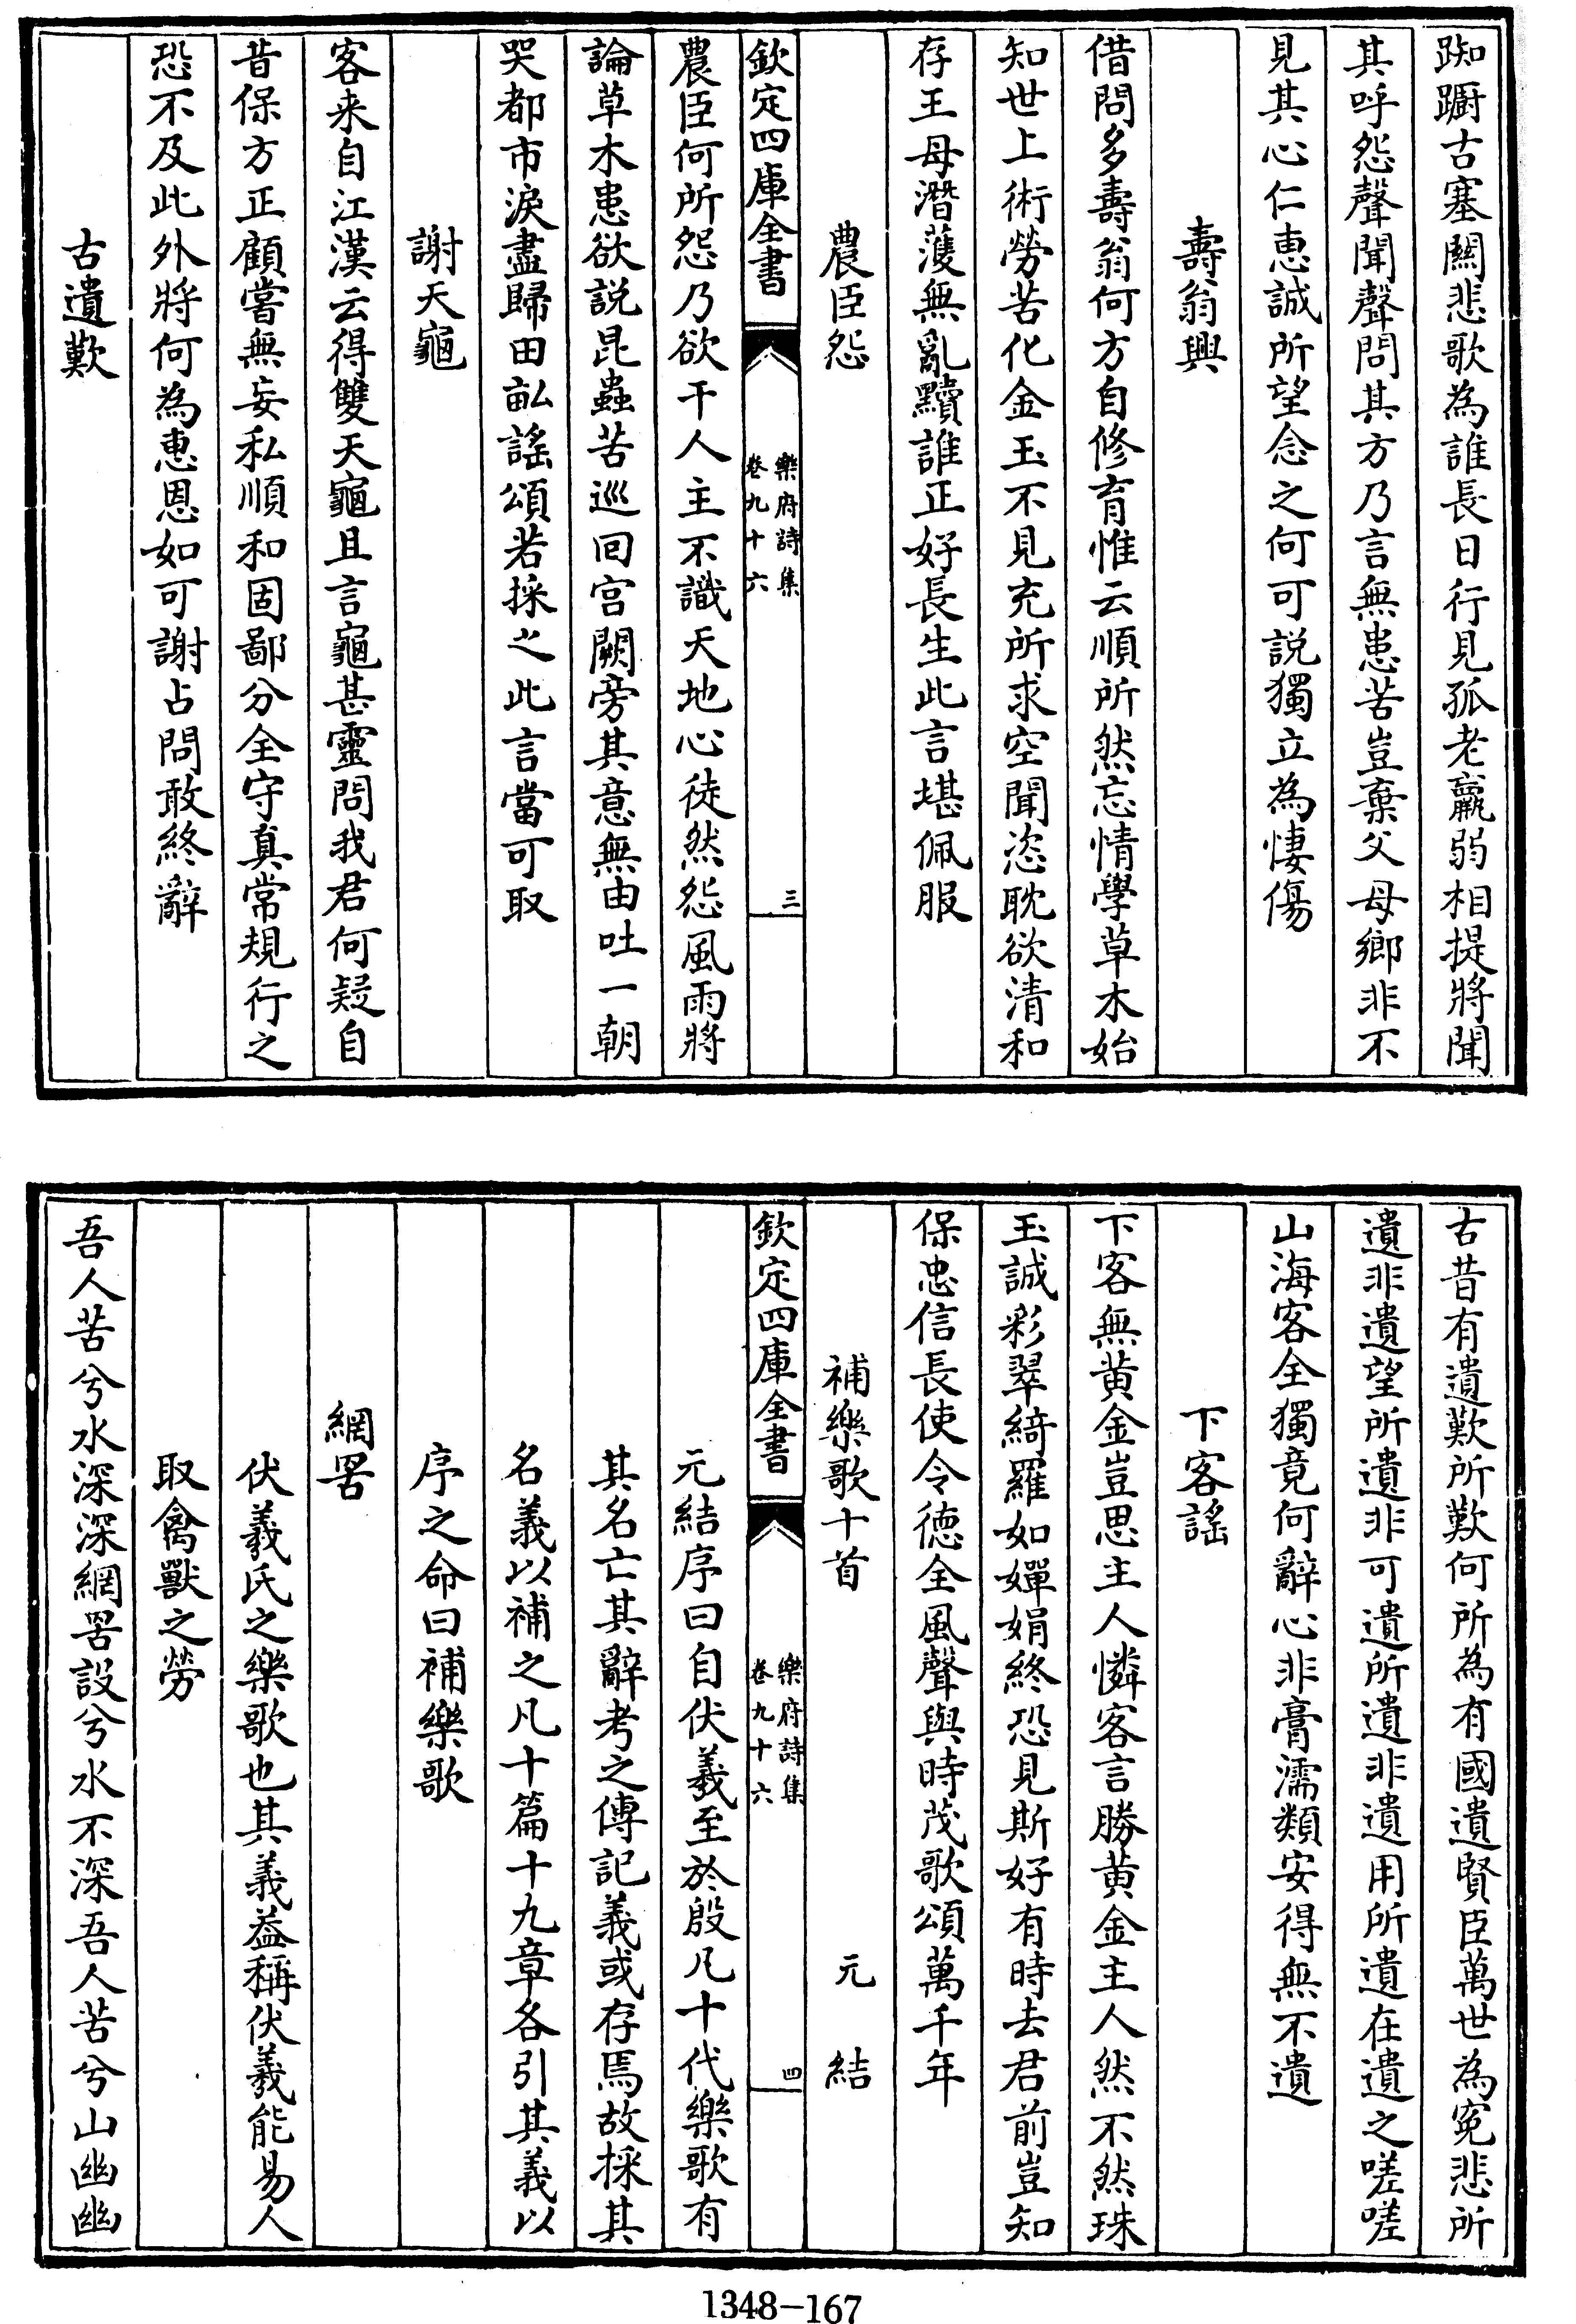 踟蹰古塞關悲歌為誰長日行見孤老羸弱相提將聞
其呼怨聲聞聲問其方乃言無患苦豈棄父母鄉非不
見其心仁惠誠所望念之何可說獨立為悽傷
壽翁興
借問多壽翁何方自修育惟云順所然忘情學草木始
知世上術勞苦化金玉不見充所求空聞恣耽欲清和
存王母潛濩無亂黷誰正好長生此言堪佩服
農臣怨
欽定四庫全書
樂府詩集
卷九十六
三
農臣何所怨乃欲干人主不識天地心徒然怨風雨將
論草木患欲説昆蟲苦巡回宫闕旁其意無由吐一朝
哭都市淚盡歸田畝謠頌若採之此言當可取
謝天龜
客来自江漢云得雙天龜且言龜甚靈問我君何疑自
昔保方正顧嘗無妄私順和固鄙分全守真常規行之
恐不及此外將何為惠恩如可謝占問敢終辭
古遺歎
古昔有遺歎所歎何所為有國遺賢臣萬世為寃悲所
遺非遺望所遺非可遺所遺非遺用所遺在遺之嗟嗟
山海客全獨竟何辭心非膏濡類安得無不遺
下客謠
下客無黄金豈思主人憐客言勝黄金主人然不然珠
玉誠彩翠綺羅如嬋娟終恐見斯好有時去君前豈知
保忠信長使令德全風聲與時茂歌頌萬千年
補樂歌十首 元結
欽定四庫全書
樂府詩集
卷九十六
四
元結序曰自伏羲至於殷凡十代樂歌有
其名亡其辭考之傳記義或存焉故採其
名義以補之凡十篇十九章各引其義以
序之命曰補樂歌
網罟
伏羲氏之樂歌也其義葢稱伏羲能易人
取禽獸之勞
吾人苦兮水深深網罟設兮水不深吾人苦兮山幽幽
1348-167